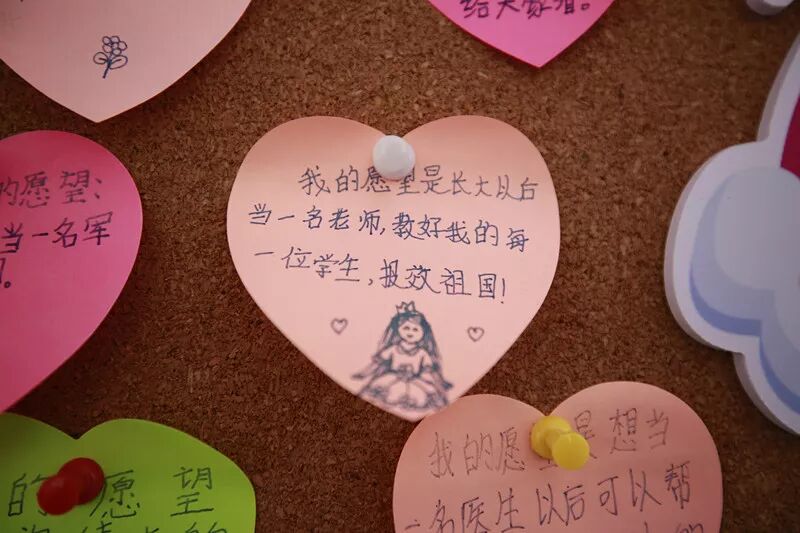 给大家看。
的愿望：
当一名军
。
我的愿望是长大以后
当一名老师，教好我的每
一位学生，报效祖国！
我的愿 是想当
一名医生以后可以帮
的 愿望